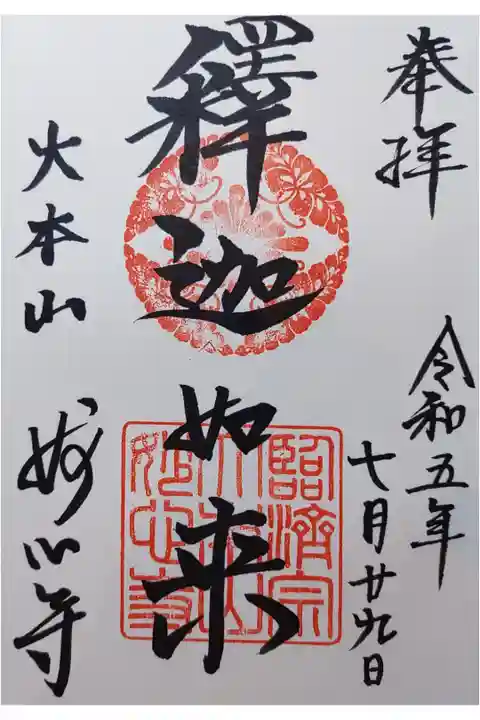 奉拝
令和五年
七月廿九日
釋迦如来
臨済宗
大本山
妙心寺
大本山
妙心寺